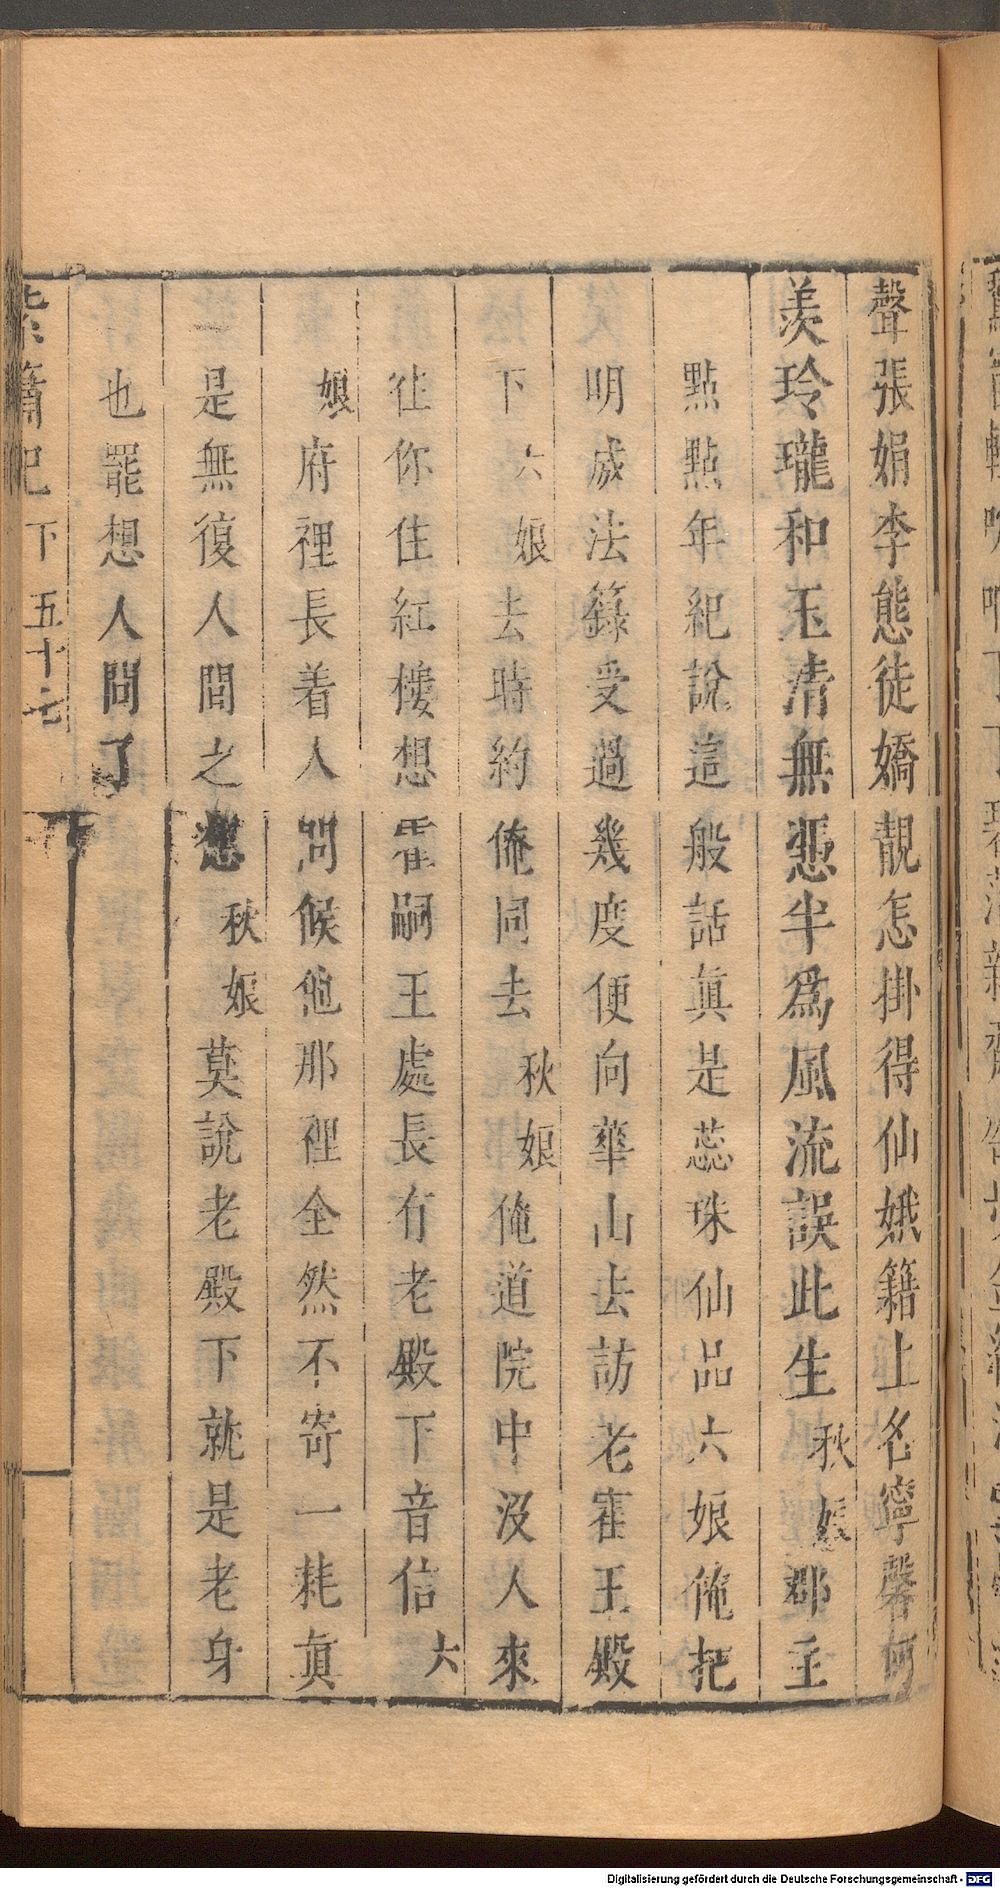 聲張娟李態徒嬌靚怎掛得仙娥籍上名寧馨何
羨玲瓏和玉清無慿半爲風流誤此生秋娘郡主
點點年紀說這般話眞是蕊珠仙品六娘俺把
明威法籙受過幾度便向華山去訪老霍王殿
下六娘去時約俺同去秋娘俺道院中沒人來
往你住紅樓想霍嗣王處長有老殿下音信六
娘府裡長着人問候他那裡全然不寄一耗眞
是無復人間之想秋娘莫說老殿下就是老身
也罷想人間了
紫簫記下五十七
Digitalisierung gefördert durch die Deutsche Forschungsgemeinschaft - DFG